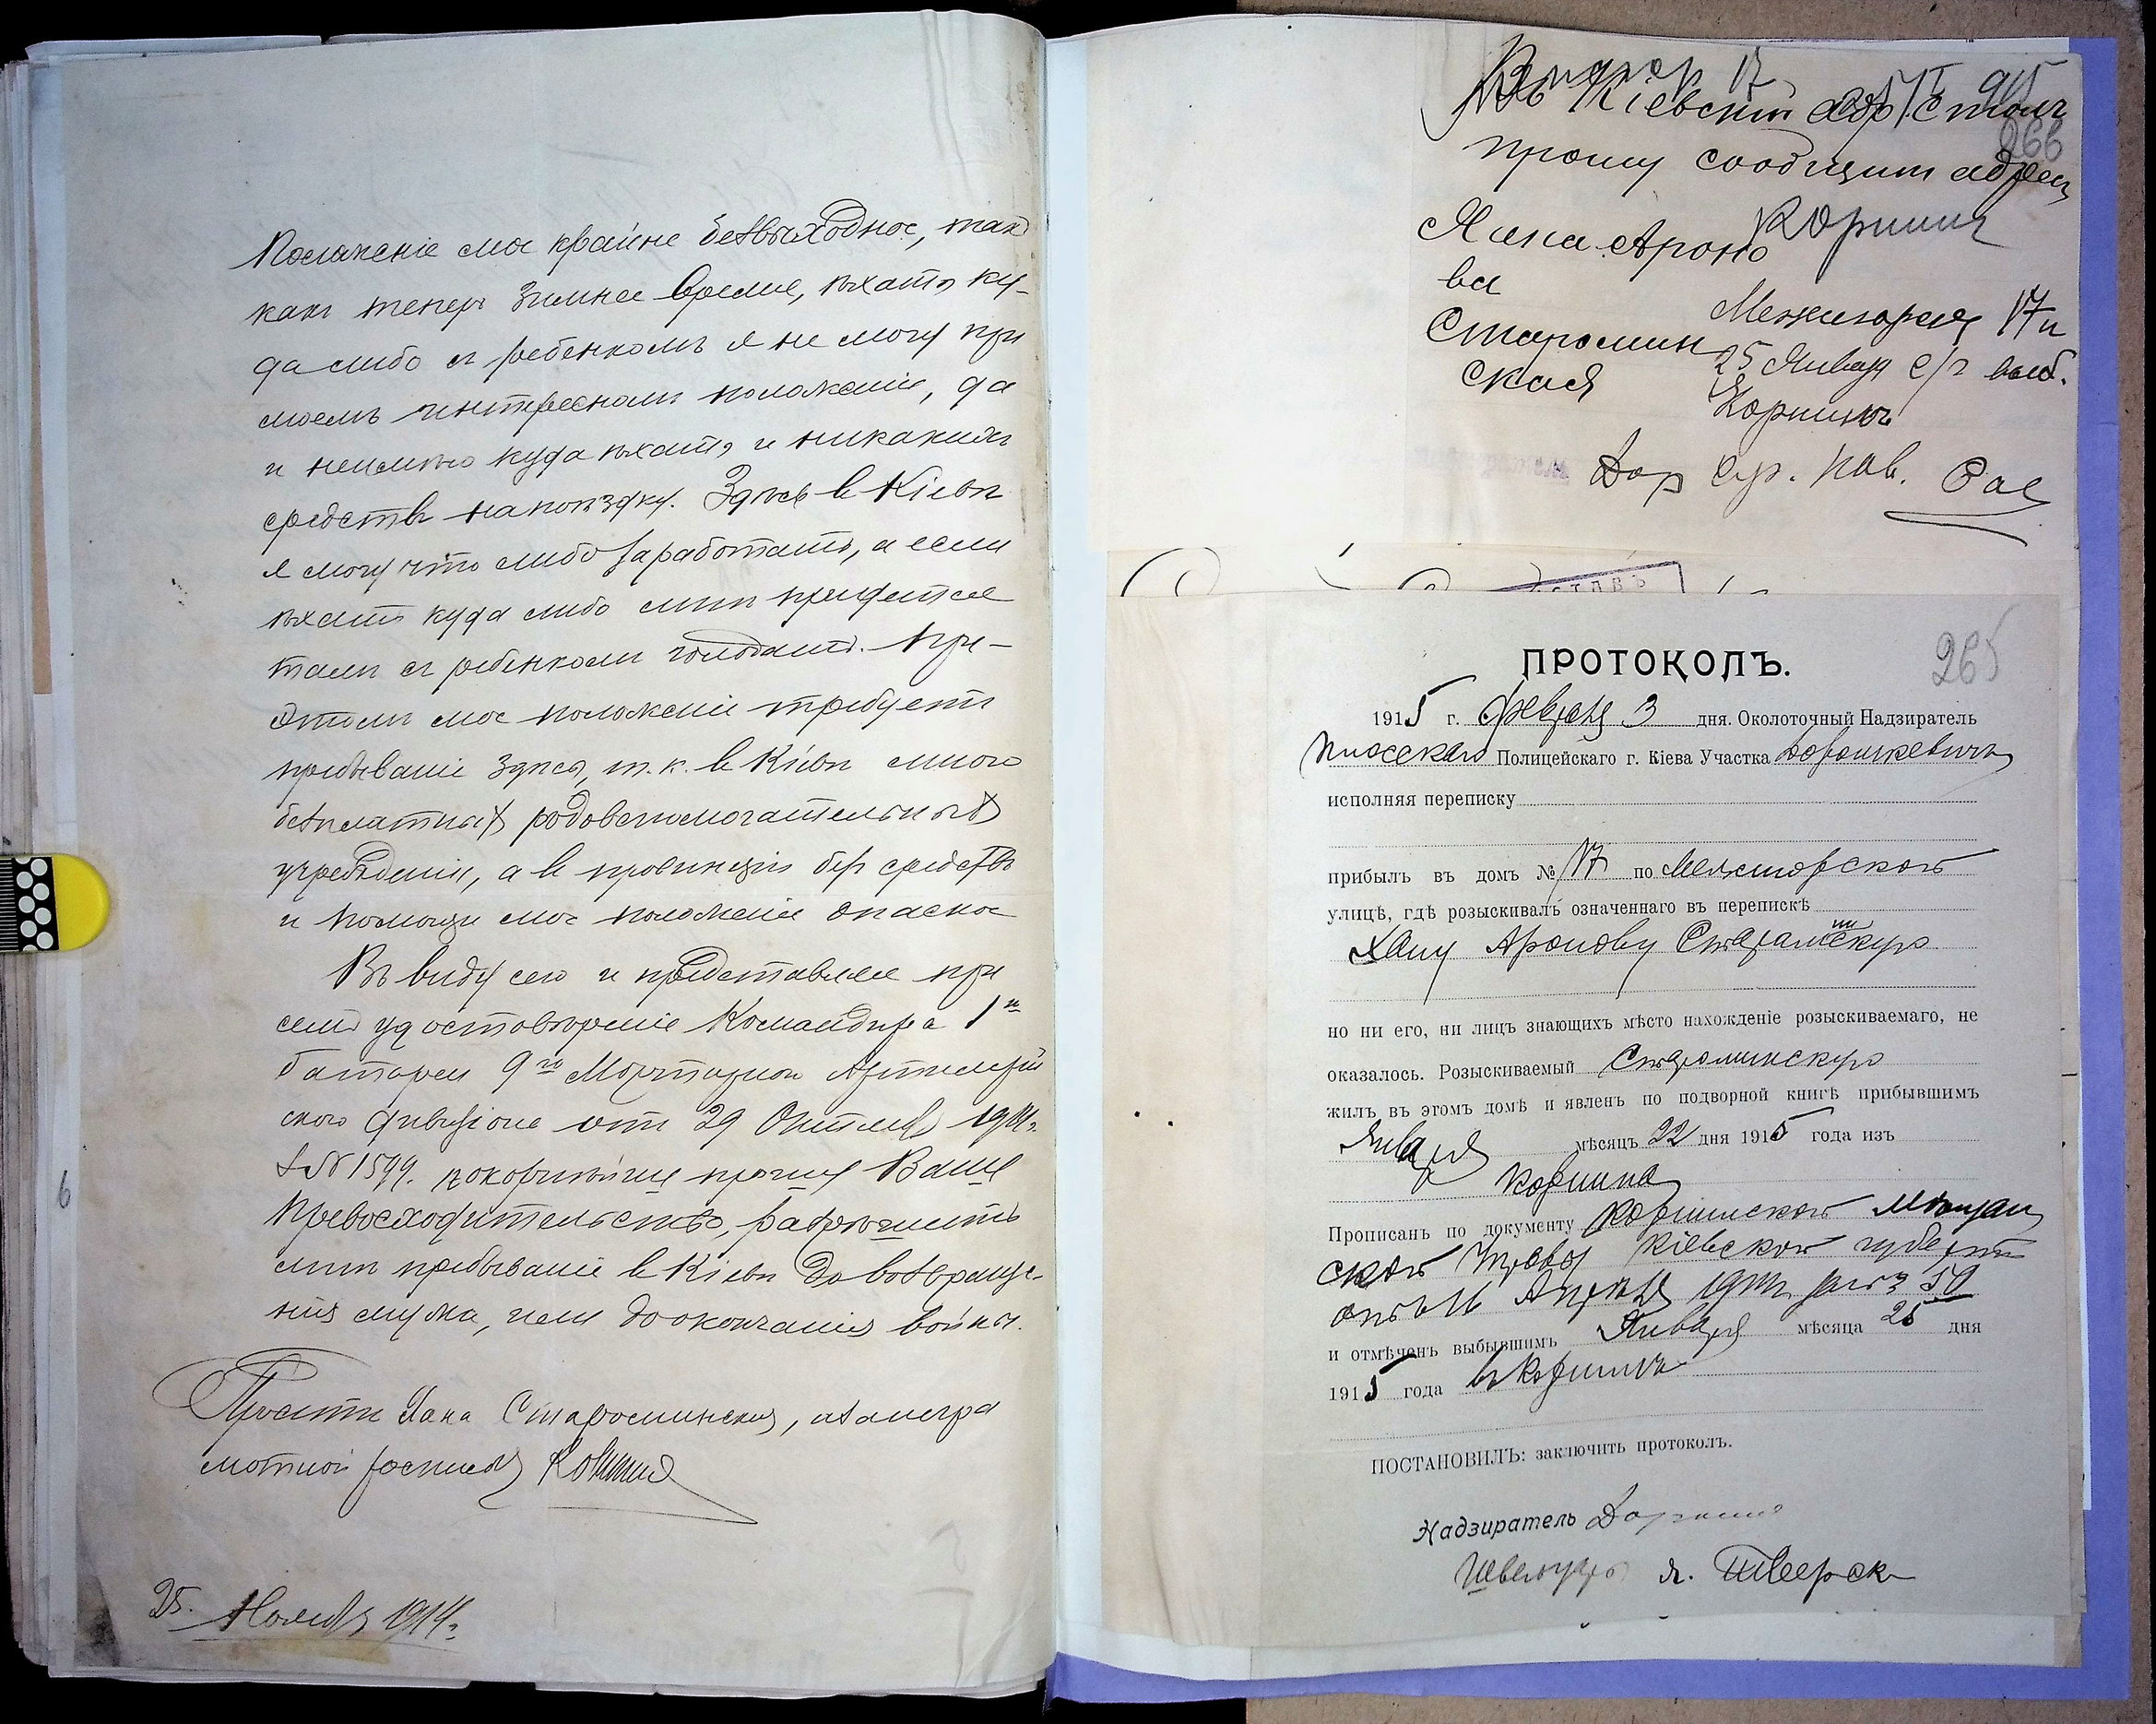 Положеніе мое крайне безвыходное, такъ
какъ теперь зимнее время, ѣхать ку-
да либо съ ребенкомъ я не могу при
моемъ интересномъ положеніи, да
и неимѣю куда ѣхать и никакихъ
средствъ на поѣздку. Здѣсь в Кіевѣ
я могу что либо заработать, а если
ѣхать куда либо мнѣ придется
тамъ съ ребенкомъ голодать. При-
этомъ мое положеніе требуетъ
пребываніе здѣсь, т. к. в Кіевѣ много
безплатныхъ родовспомогательныхъ
учрежденій, а в провинціи без средствъ
и помощи мое положеніе опасное
Въ виду сего и представляя при
семъ удостовѣреніе Командира 1й
батареи 9го Мортирнаго Артилерій
скаго дивизіона отъ 29 Октября 1914 г.
за № 1599. покорнѣйше прошу Ваше
Превосходительство, разрѣшить
мнѣ пребываніе в Кіевѣ до возвраще-
нія мужа, или до окончанія войны.
Просит. Хана Староминская, а за неграмотной
росписался
25. Ноября 1914 г.
915
Въ Кіевскій адр. Столъ
266
прошу сообщить адресъ
Хана Ароно
ва
Староминская
Коршин
Межигорская 17
25 Января с/г выб.
Коршинъ
СТАВЪ
ПРОТОКОЛЪ.
265
1915 г. Февраля 3 дня. Околоточный Надзиратель
Плосскаго Полицейскаго г. Кіева Участка Дорошкевичъ
исполняя переписку
прибылъ въ домъ № 17 по Межигорской
улицѣ, гдѣ розыскивалъ означеннаго въ перепискѣ
Хану Аронову Староминскую
но ни его, ни лицъ знающихъ мѣсто нахожденіе розыскиваемаго, не
оказалось. Розыскиваемый Староминскую
жилъ въ этомъ домѣ и явленъ по подворной книгѣ прибывшимъ
Января мѣсяцъ 22 дня 1915 года изъ
Коршина
Прописанъ по документу Коршинской Мѣщан
ской Управы Кіевской губерніи
отъ 16 Апрѣля 1914 за № 50
и отмѣченъ выбывшимъ Января мѣсяца 25 дня
1915 года въ Коршинъ
ПОСТАНОВИЛЪ: заключить протоколъ.
Надзиратель
Швейцаръ
6